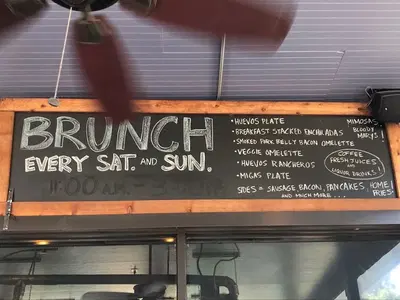 BRUNCH
EVERY SAT. AND SUN.
11:00 A.M. -
• HUEVOS PLATE
• BREAKFAST STACKED ENCHILADAS
• SMOKED PORK BELLY BACON OMELETTE
• VEGGIE OMELETTE
• HUEVOS RANCHEROS
• MIGAS PLATE
SIDES = SAUSAGE, BACON, PANCAKES, HOME FRIES
AND MUCH MORE...
MIMOSAS
BLOODY
MARYS!
COFFEE
FRESH JUICES
AND
LIQUOR DRINKS!